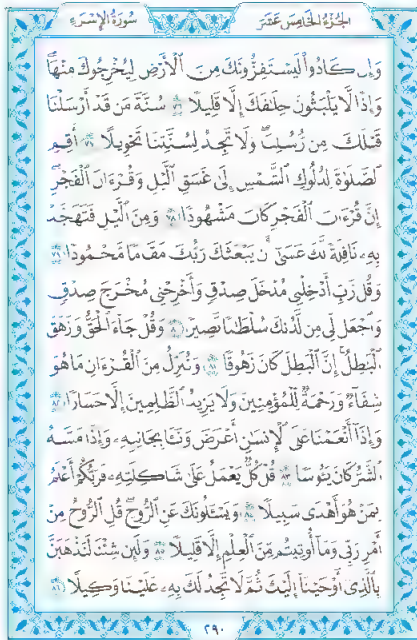 سُورَةُ الإِسْرَاء الجُزْءُ الخَامِسَ عَشَرَ
وَإِن كَادُوا۟ لَيَسْتَفِزُّونَكَ مِنَ ٱلْأَرْضِ لِيُخْرِجُوكَ مِنْهَا
وَإِذًا لَّا يَلْبَثُونَ خِلَٰفَكَ إِلَّا قَلِيلًا ٧٦ سُنَّةَ مَن قَدْ أَرْسَلْنَا
قَبْلَكَ مِن رُّسُلِنَا وَلَا تَجِدُ لِسُنَّتِنَا تَحْوِيلًا ٧٧ أَقِمِ
ٱلصَّلَوٰةَ لِدُلُوكِ ٱلشَّمْسِ إِلَىٰ غَسَقِ ٱلَّيْلِ وَقُرْءَانَ ٱلْفَجْرِ
إِنَّ قُرْءَانَ ٱلْفَجْرِ كَانَ مَشْهُودًا ٧٨ وَمِنَ ٱلَّيْلِ فَتَهَجَّدْ
بِهِۦ نَافِلَةً لَّكَ عَسَىٰٓ أَن يَبْعَثَكَ رَبُّكَ مَقَامًا مَّحْمُودًا ٧٩
وَقُل رَّبِّ أَدْخِلْنِى مُدْخَلَ صِدْقٍ وَأَخْرِجْنِى مُخْرَجَ صِدْقٍ
وَٱجْعَل لِّى مِن لَّدُنكَ سُلْطَٰنًا نَّصِيرًا ٨٠ وَقُلْ جَآءَ ٱلْحَقُّ وَزَهَقَ
ٱلْبَٰطِلُ إِنَّ ٱلْبَٰطِلَ كَانَ زَهُوقًا ٨١ وَنُنَزِّلُ مِنَ ٱلْقُرْءَانِ مَا هُوَ
شِفَآءٌ وَرَحْمَةٌ لِّلْمُؤْمِنِينَ وَلَا يَزِيدُ ٱلظَّٰلِمِينَ إِلَّا خَسَارًا ٨٢
وَإِذَآ أَنْعَمْنَا عَلَى ٱلْإِنسَٰنِ أَعْرَضَ وَنَـَٔا بِجَانِبِهِۦ وَإِذَا مَسَّهُ
ٱلشَّرُّ كَانَ يَـُٔوسًا ٨٣ قُلْ كُلٌّ يَعْمَلُ عَلَىٰ شَاكِلَتِهِۦ فَرَبُّكُمْ أَعْلَمُ
بِمَنْ هُوَ أَهْدَىٰ سَبِيلًا ٨٤ وَيَسْـَٔلُونَكَ عَنِ ٱلرُّوحِ قُلِ ٱلرُّوحُ مِنْ
أَمْرِ رَبِّى وَمَآ أُوتِيتُم مِّنَ ٱلْعِلْمِ إِلَّا قَلِيلًا ٨٥ وَلَئِن شِئْنَا لَنَذْهَبَنَّ
بِٱلَّذِىٓ أَوْحَيْنَآ إِلَيْكَ ثُمَّ لَا تَجِدُ لَكَ بِهِۦ عَلَيْنَا وَكِيلًا ٨٦
٢٩٠